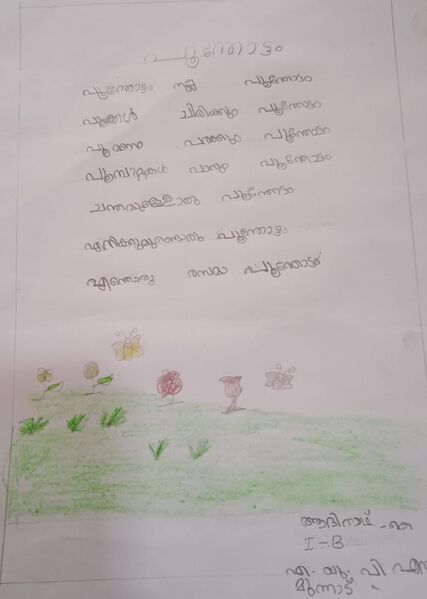 പൂന്തോട്ടം
പൂന്തോട്ടം നല്ല പൂന്തോട്ടം
പൂക്കൾ ചിരിക്കും പൂന്തോട്ടം
പൂമണം പരത്തും പൂന്തോട്ടം
പൂമ്പാറ്റകൾ പാറും പൂന്തോട്ടം
ചന്തമുള്ളോരു പൂന്തോട്ടം
എനിക്കുമുണ്ടൊരു പൂന്തോട്ടം
എന്തൊരു രസമാ പൂന്തോട്ടം
ആദിനാഥ് - കെ
I - B
എ. യു. പി എസ്
മുന്നാട്